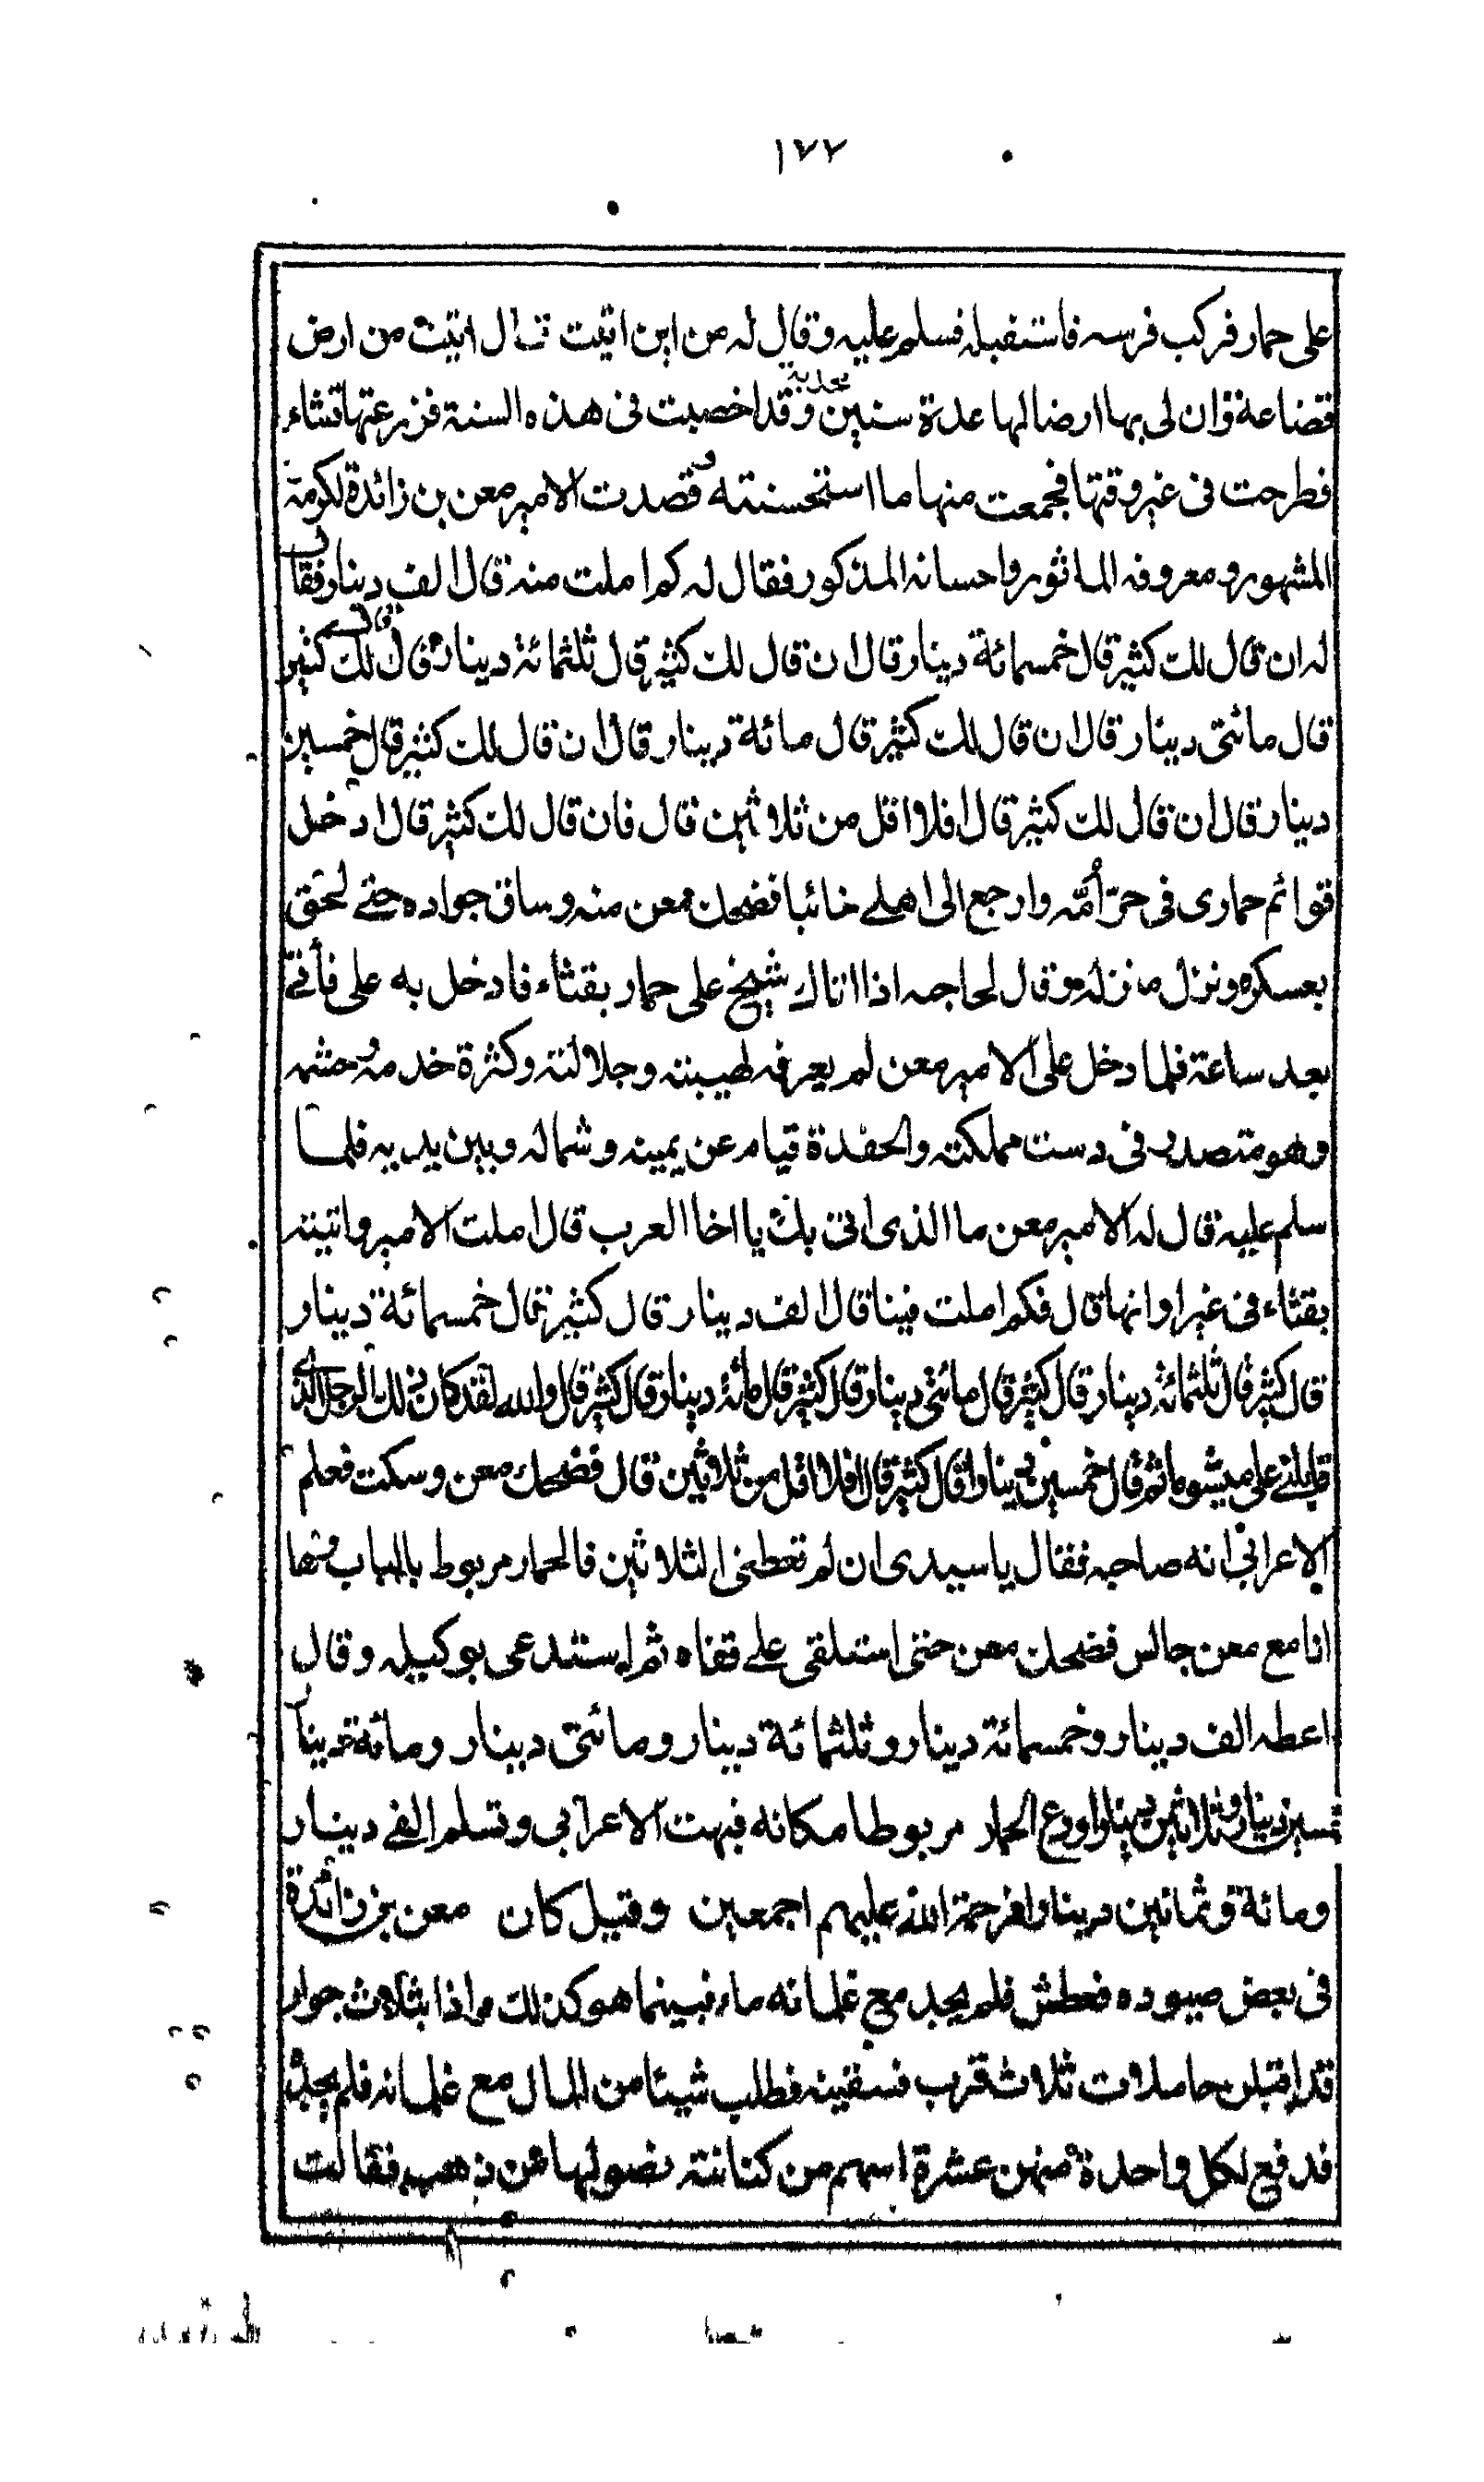 ١٧٧
على حمار فركب فرسه فاستقبله فسلم عليه وقال له من اين اتيت قال اتيت من ارض
قضاعة وان لى بها ارضا لها عدة سنين مجدبة وقد اخصبت فى هذه السنة فزرعتها قثاء
فطرحت فى غير وقتها فجمعت منها ما استحسنته وقصدت الامير معن بن زائدة لكرمه
المشهور ومعروفه الماثور واحسانه المذكور فقال له كم املت منه قال الف دينار فقال
له ان قال لك كثير قال خمسمائة دينار قال ان قال لك كثير قال ثلثمائة دينار قال ان قال لك كثير
قال مائتى دينار قال ان قال لك كثير قال مائة دينار قال ان قال لك كثير قال خمسين
دينار قال ان قال لك كثير قال افلا اقل من ثلاثين قال فان قال لك كثير قال ادخل
قوائم حمارى فى حرّ أمّه وارجع الى اهلى خائبا فضحك معن منه وساق جواده حتى لحق
بعسكره ونزل منزله وقال لحاجبه اذا اتاك شيخ على حمار بقثاء فادخل به على فأتى
بعد ساعة فلما دخل على الامير معن لم يعرفه لهيبته وجلالته وكثرة خدمه وحشمه
وهو متصدر فى دست مملكته والحفدة قيام عن يمينه وشماله وبين يديه فلما
سلم عليه قال له الامير معن ما الذى اتى بك يا اخا العرب قال املت الامير واتيته
بقثاء فى غير اوانها قال فكم املت فينا قال الف دينار قال كثير قال خمسمائة دينار
قال كثير قال ثلثمائة دينار قال كثير قال مائتى دينار قال كثير قال مائة دينار قال كثير قال والله لقد كان ذلك الرجل الذى
قابلنى على ميشوما ثم قال خمسين دينارا قال كثير قال افلا اقل من ثلاثين قال فضحك معن وسكت فعلم
الاعرابى انه صاحبه فقال يا سيدى ان لم تعطنى الثلاثين فالحمار مربوط بالباب وها
انا مع معن جالس فضحك معن حتى استلقى على قفاه ثم استدعى بوكيله وقال
اعطه الف دينار وخمسمائة دينار وثلثمائة دينار ومائتى دينار ومائة دينار
خمسين دينار وثلاثين دينارا ودع الحمار مربوطا مكانه فبهت الاعرابى وتسلم الفى دينار
ومائة وثمانين دينارا فرحمة الله عليهم اجمعين وقيل كان معن بن زائدة
فى بعض صيوده فعطش فلم يجد مع غلمانه ماء فبينما هو كذلك واذا بثلاث جوار
قد اقبلن حاملات ثلاث قرب فسقينه فطلب شيئا من المال مع غلمانه فلم يجد
فدفع لكل واحدة منهن عشرة اسهم من كنانته نصولها من ذهب فقالت